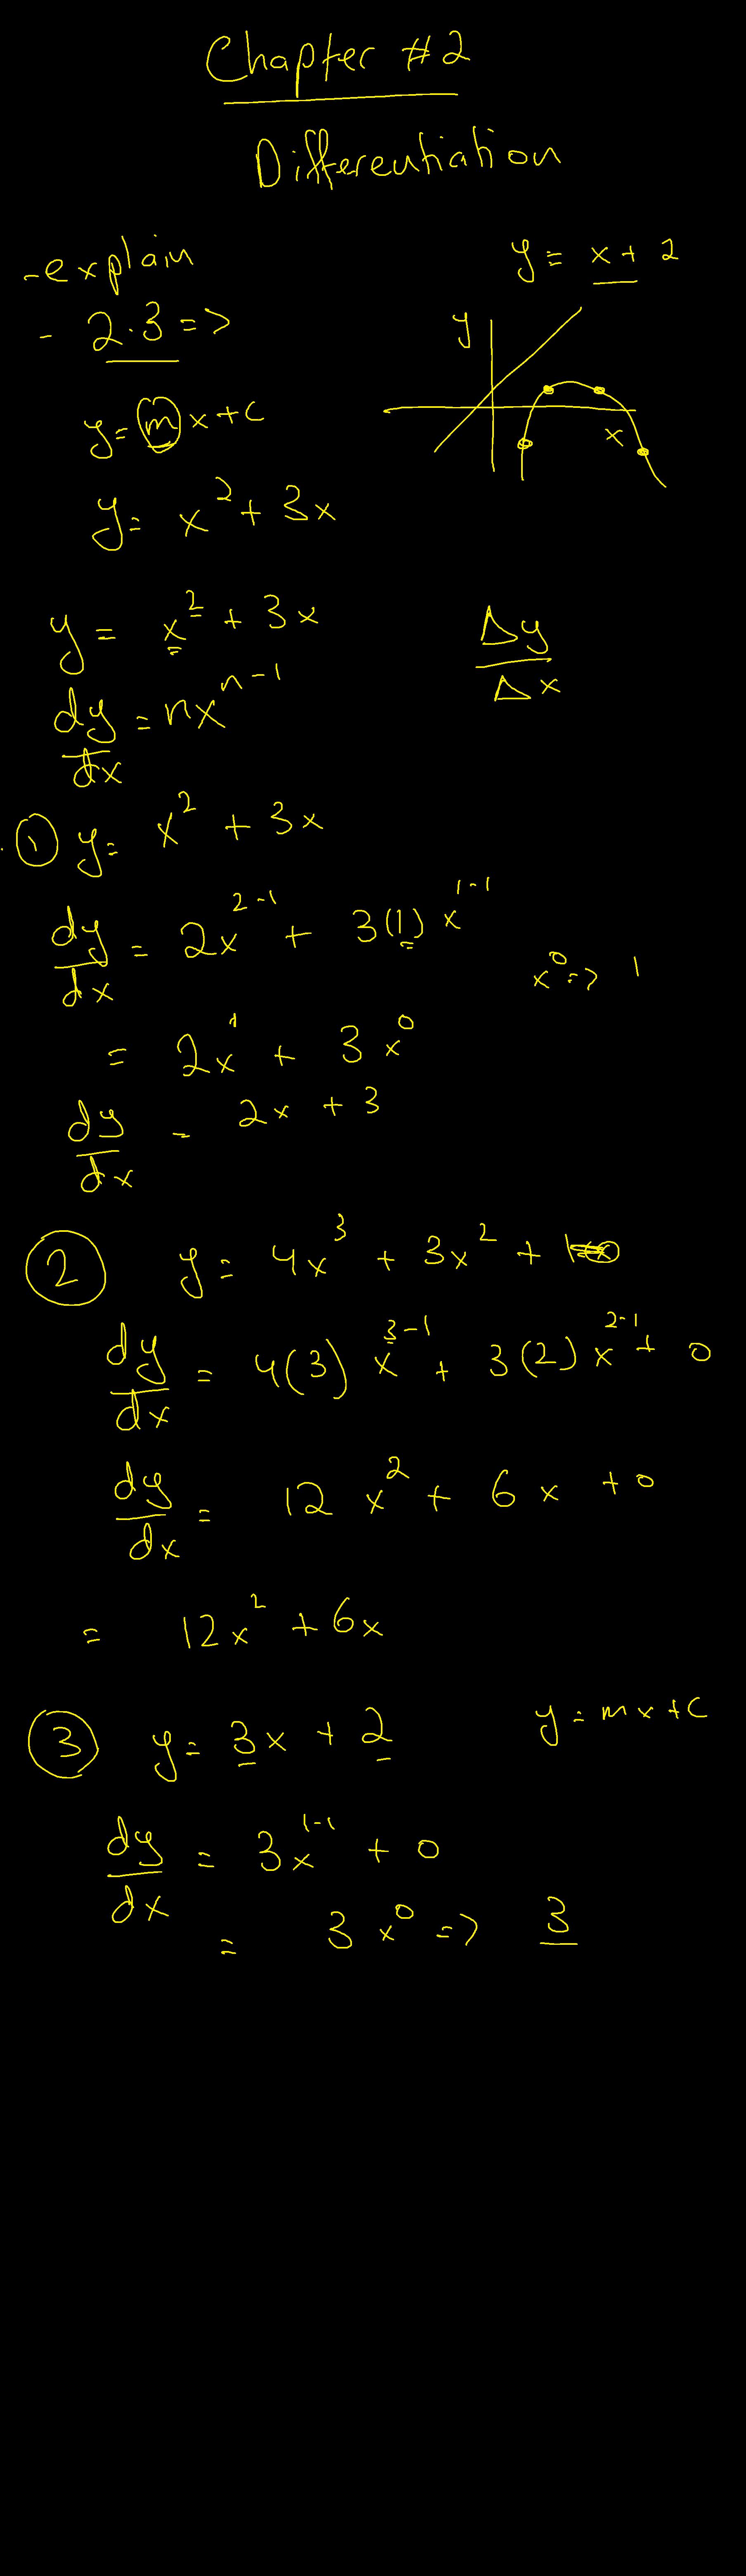 Chapter #2
Differentiation
- explain
y = x + 2
- 2.3 =>
y
y = mx + c
x
y = x² + 3x
y = x² + 3x
Δy/Δx
dy/dx = nx^(n-1)
① y = x² + 3x
dy/dx = 2x^(2-1) + 3(1)x^(1-1)
x⁰ => 1
= 2x¹ + 3x⁰
dy/dx = 2x + 3
② y = 4x³ + 3x² + 1
dy/dx = 4(3)x^(3-1) + 3(2)x^(2-1) + 0
dy/dx = 12x² + 6x + 0
= 12x² + 6x
③ y = 3x + 2
y = mx + c
dy/dx = 3x^(1-1) + 0
= 3x⁰ => 3